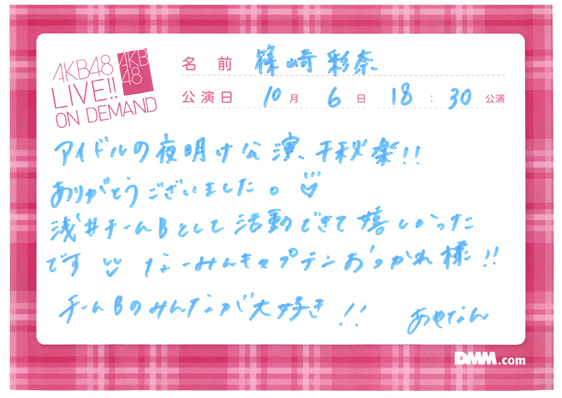 AKB48
LIVE!!
ON DEMAND
AKB
48
名前 篠崎彩奈
公演日 10月 6日 18:30 公演
アイドルの夜明け公演、千秋楽!!
ありがとうございました。
浅井チームBとして活動できて嬉しかった
です なーみんキャプテンおつかれ様!!
チームBのみんなが大好き!!
あやなん
DMM.com